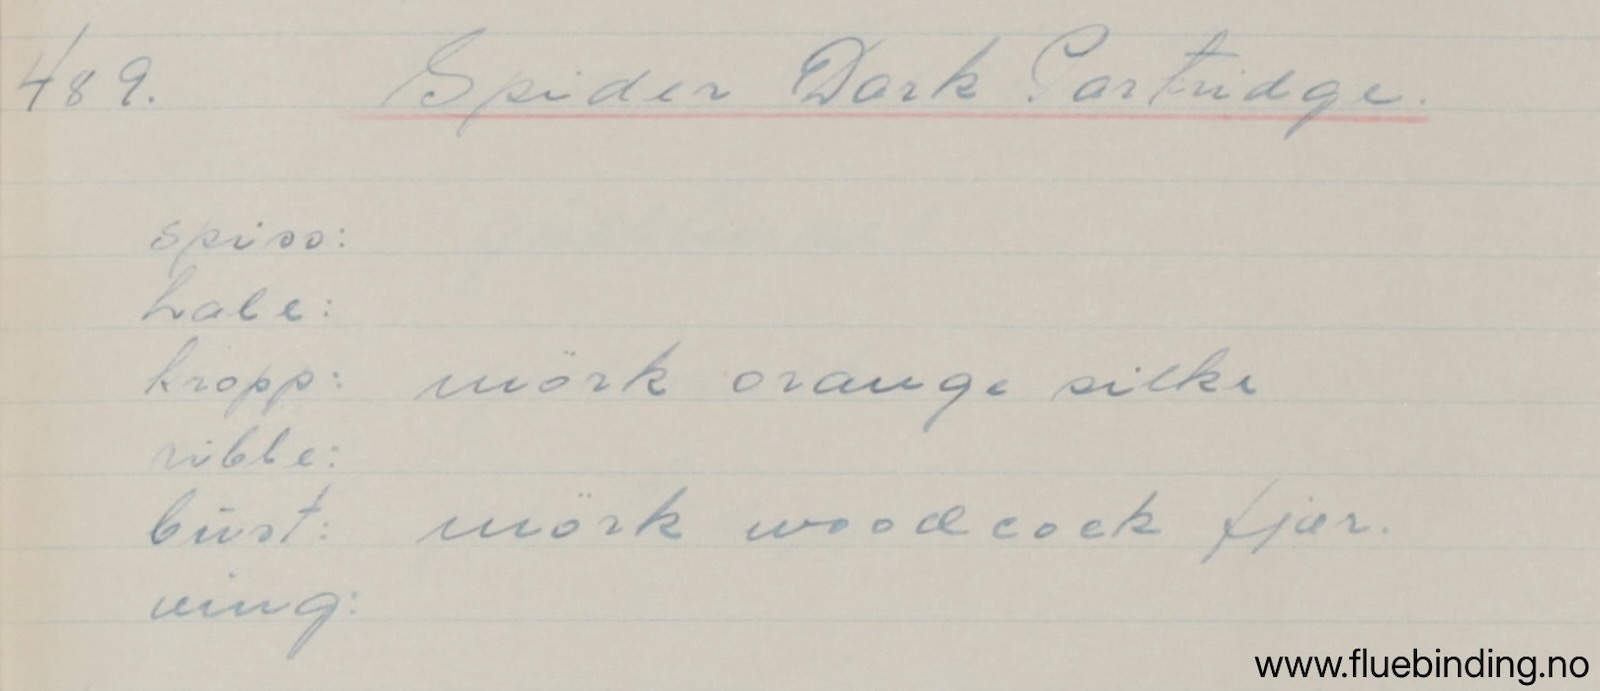 489. Spider Dark Partridge.
spiss:
hale:
kropp: mörk orange silke
ribbe:
büst: mörk woodcock fjær.
ving:
www.fluebinding.no